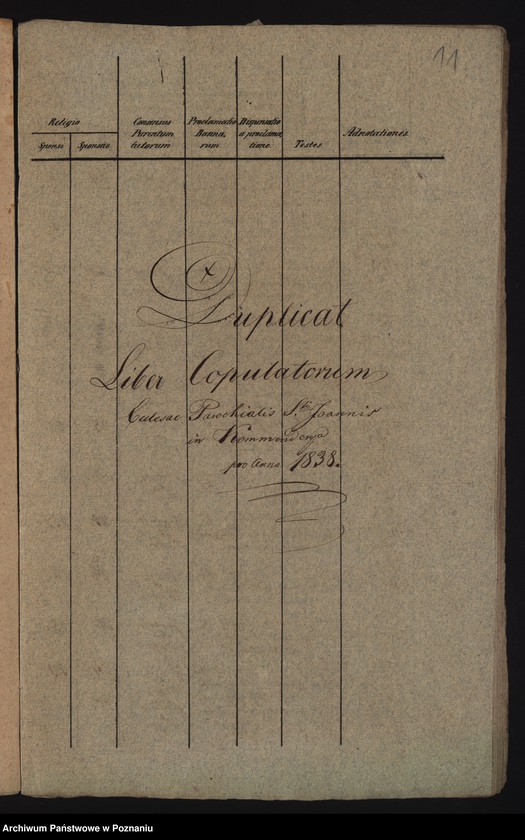 11
Religio
Sponsi Sponsae
Consensus Parentum tutorum
Proclamatio Banno, rum
Dispensatio a proclama, tione
Testes
Adnotationes
Duplicat
Liber Copulatorum
Eclesae Parochialis S. Joannis
in Kommenderya
pro Anno 1838.
Archiwum Państwowe w Poznaniu